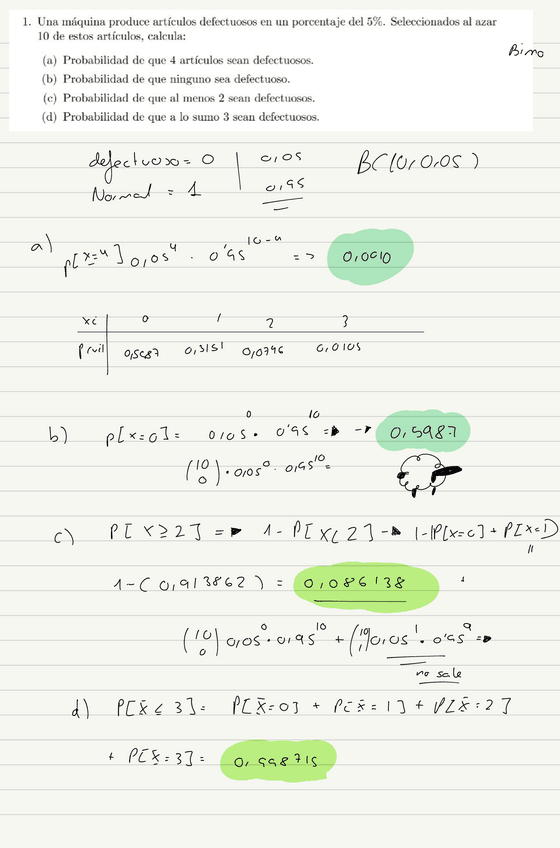 1. Una máquina produce artículos defectuosos en un porcentaje del 5%. Seleccionados al azar
10 de estos artículos, calcula:
Bino
(a) Probabilidad de que 4 artículos sean defectuosos.
(b) Probabilidad de que ninguno sea defectuoso.
(c) Probabilidad de que al menos 2 sean defectuosos.
(d) Probabilidad de que a lo sumo 3 sean defectuosos.
defectuoso = 0 | 0,05 B(10,0,05)
Normal = 1 | 0,95
a) P[x=4] 0,05⁴ · 0'95¹⁰⁻⁴ => 0,0010
xi | 0 1 2 3
0,5987 0,3151 0,0746 0,0105
b) P[x=0] = 0,05⁰ · 0'95¹⁰ => → 0,5987
(10 0) · 0,05⁰ · 0,95¹⁰ =
c) P[X≥2] => 1 - P[X<2] → 1-(P[x=0] + P[x=1)
1-(0,913862) = 0,086138
(10 0) 0,05⁰ · 0,95¹⁰ + (10 1) 0,05¹ · 0'95⁹ =>
no sale
d) P[x̄ ≤ 3] = P[x̄=0] + P[x̄=1] + P[x̄=2]
+ P[x̄=3] = 0,998715